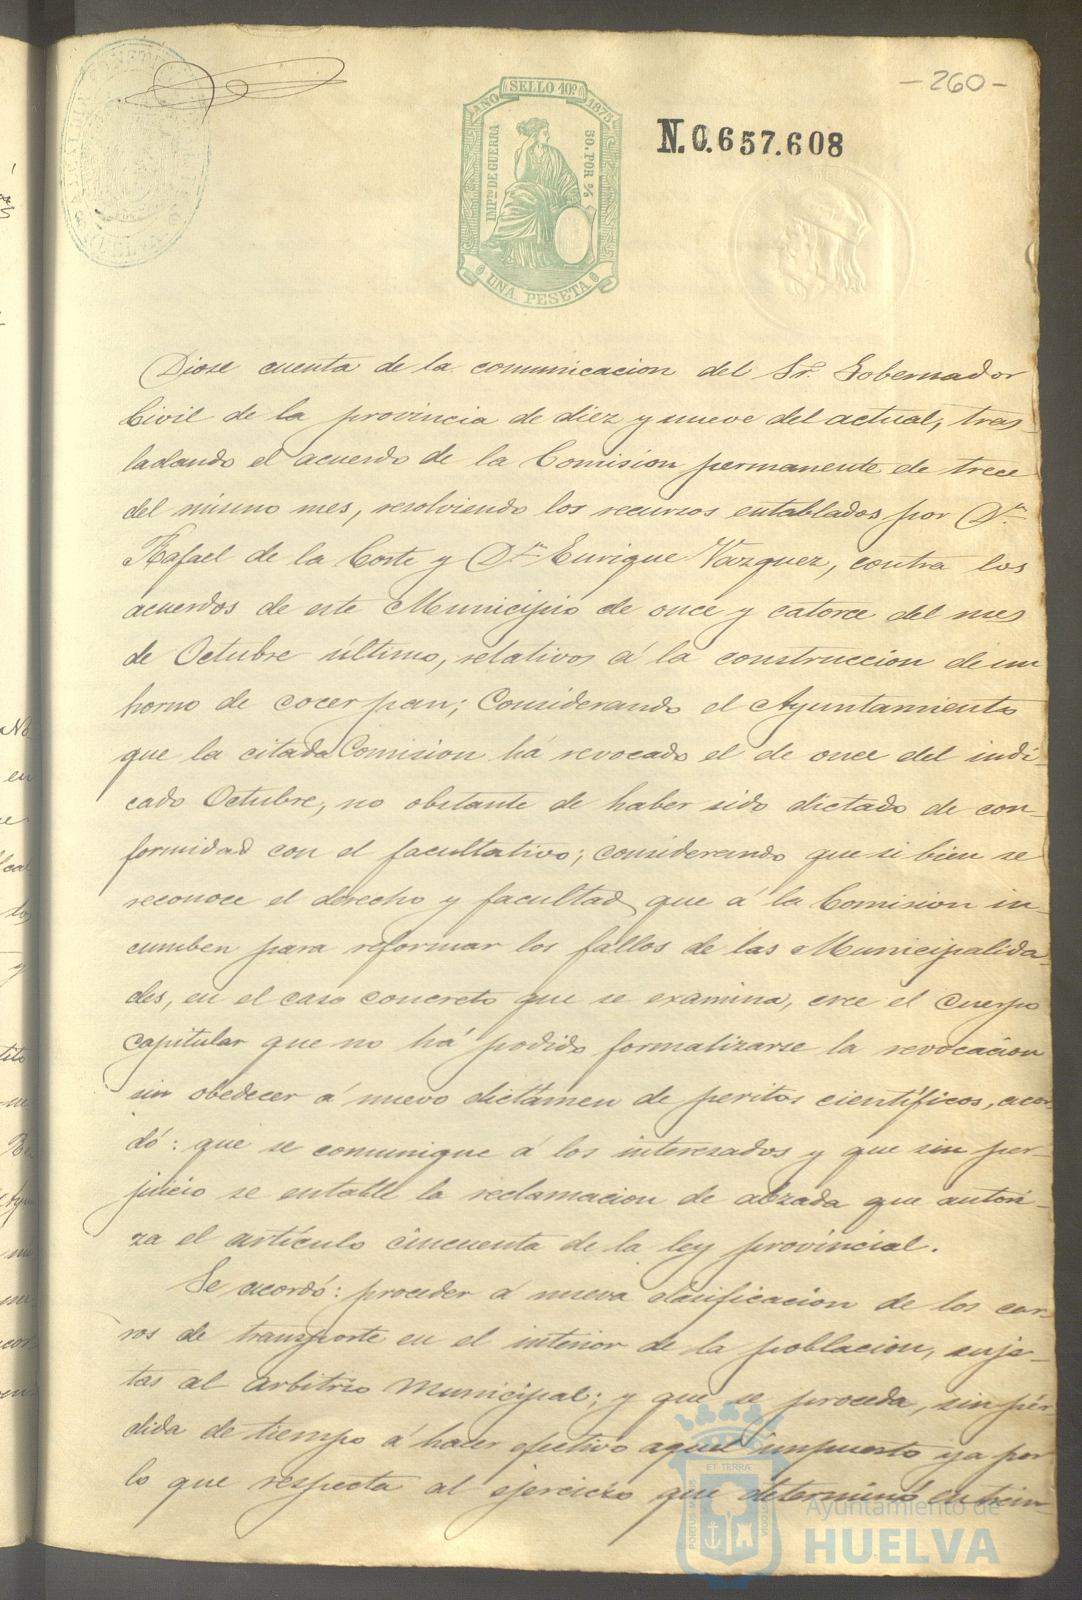 - 260 -
SELLO 10º
AÑO 1875
IMPto DE GUERRA
50. POR %
UNA PESETA
N.0.657.608
Diose cuenta de la comunicacion del Sr. Gobernador
Civil de la provincia de diez y nueve del actual, tras-
ladando el acuerdo de la Comision permanente de trece
del mismo mes, resolviendo los recursos entablados por Dn.
Rafael de la Corte y Dn. Enrique Vazquez, contra los
acuerdos de este Municipio de once y catorce del mes
de Octubre último, relativos á la construccion de un
horno de cocer pan; Considerando el Ayuntamiento
que la citada Comision há revocado el de once del indi-
cado Octubre, no obstante de haber sido dictado de con-
formidad con el facultativo; considerando que si bien se
reconoce el derecho y facultad que á la Comision in-
cumben para reformar los fallos de las Municipalida-
des, en el caso concreto que se examina, cree el Cuerpo
capitular que no há podido formalizarse la revocacion
sin obedecer á nuevo dictámen de peritos científicos, acor-
dó: que se comunique á los interesados y que sin per-
juicio se entable la reclamacion de alzada que autori-
za el artículo cincuenta de la ley provincial.
Se acordó: proceder á nueva clasificacion de los car-
ros de transporte en el interior de la poblacion, suje-
tas al arbitrio Municipal; y que se proceda, sin pér-
dida de tiempo á hacer efectivo aquel impuesto ya por
lo que respecta al ejercicio que determinó en trein-
PORTUS MARIS
ET TERRÆ
CUSTODIA
Ayuntamiento de
HUELVA